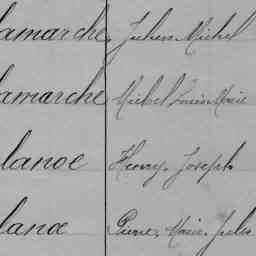 lamarche, Julien Michel
lamarche Michel Louis Marie
lanoe Henry, Joseph
lanoe Pierre, Marie, Jules